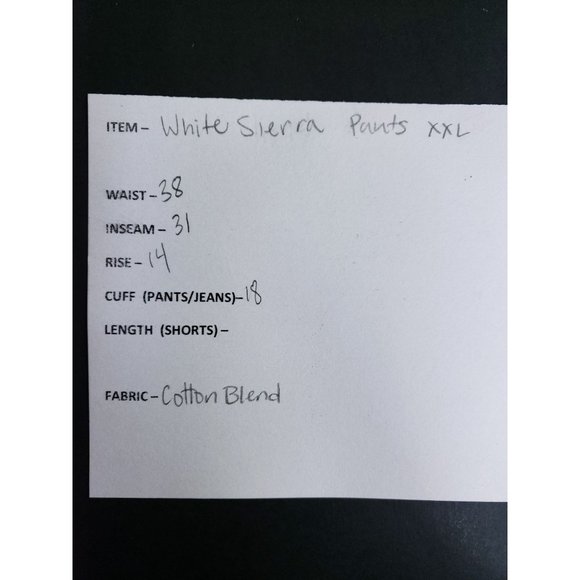 ITEM – White Sierra Pants XXL
WAIST – 38
INSEAM – 31
RISE – 14
CUFF (PANTS/JEANS)– 18
LENGTH (SHORTS) –
FABRIC – Cotton Blend